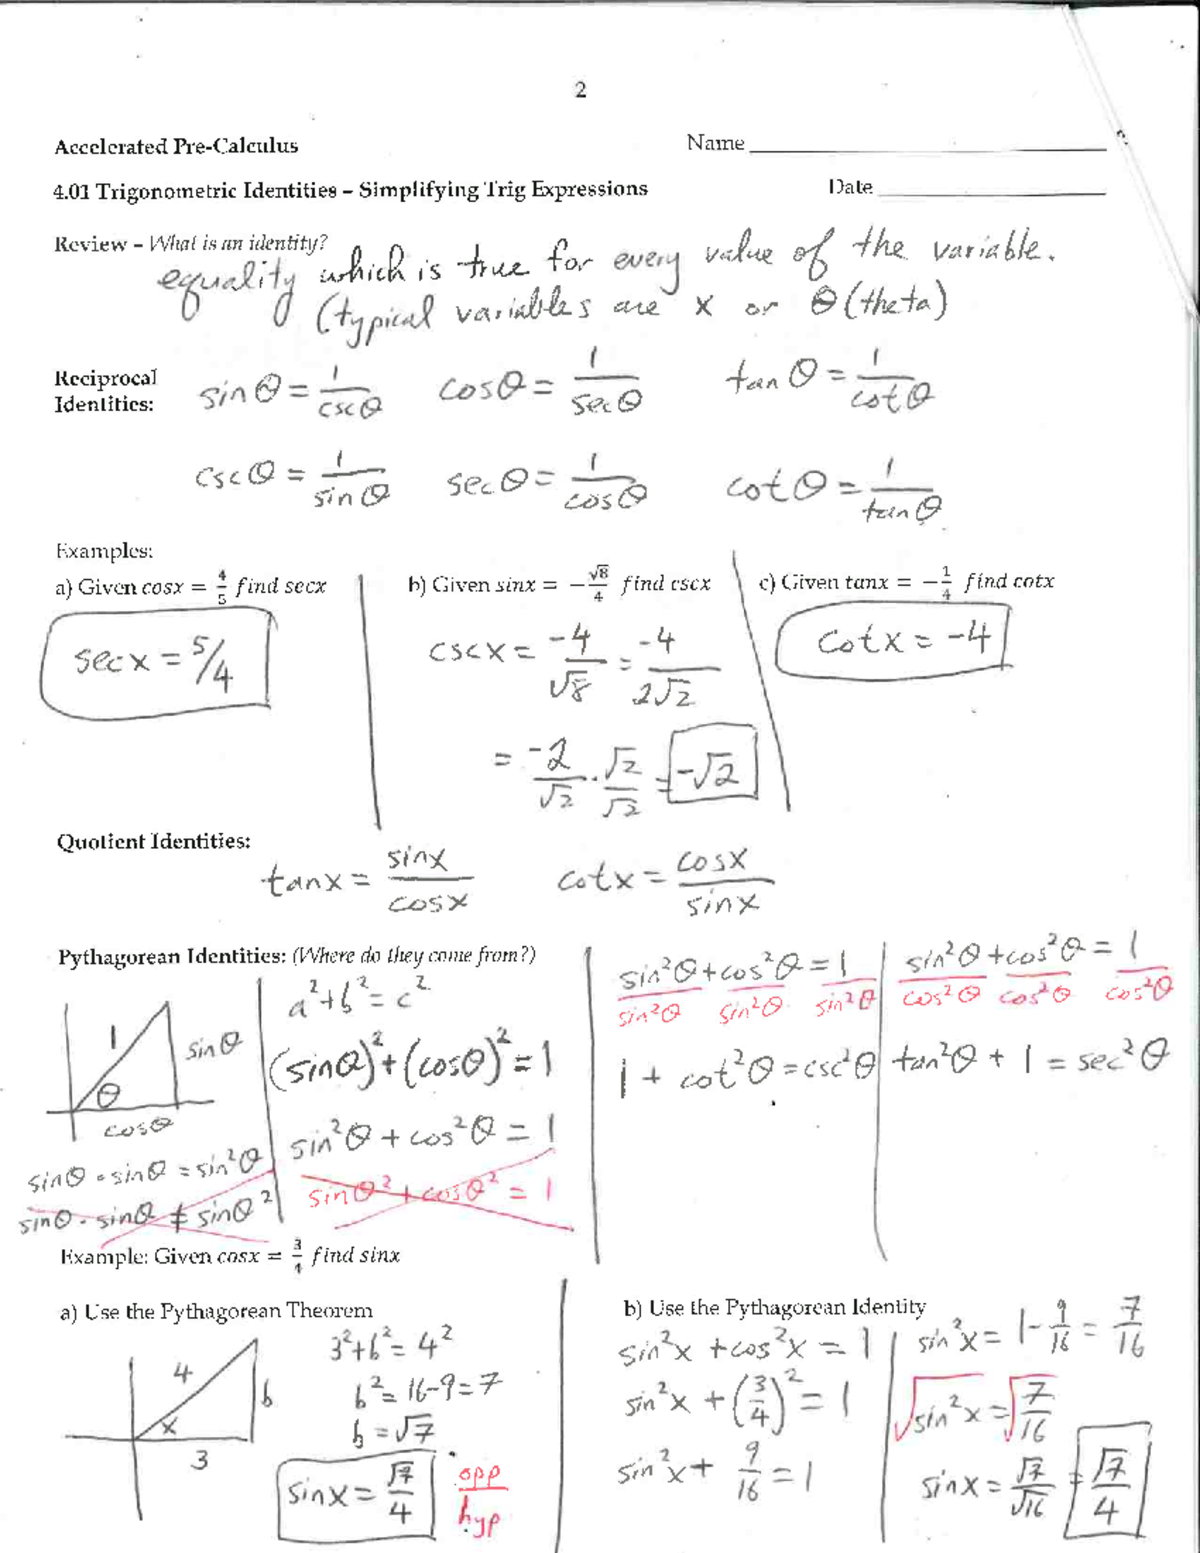 2
Accelerated Pre-Calculus Name
4.01 Trigonometric Identities – Simplifying Trig Expressions Date
Review – What is an identity?
equality which is true for every value of the variable.
(typical variables are x or θ (theta)
Reciprocal Identities:
sin θ = 1/cscθ cosθ = 1/secθ tan θ = 1/cotθ
cscθ = 1/sinθ secθ = 1/cosθ cotθ = 1/tanθ
Examples:
a) Given cosx = 4/5 find secx
secx = 5/4
b) Given sinx = −√8/4 find cscx
cscx = -4/√8 = -4/2√2
= -2/√2 · √2/√2 = -√2
c) Given tanx = −1/4 find cotx
cotx = -4
Quotient Identities:
tanx = sinx/cosx cotx = cosx/sinx
Pythagorean Identities: (Where do they come from?)
1
sinθ
θ
cosθ
sinθ · sinθ = sin²θ
sinθ · sinθ ≠ sinθ²
a² + b² = c²
(sinθ)² + (cosθ)² = 1
sin²θ + cos²θ = 1
sinθ² + cosθ² = 1
sin²θ + cos²θ = 1
sin²θ sin²θ sin²θ
1 + cot²θ = csc²θ
sin²θ + cos²θ = 1
cos²θ cos²θ cos²θ
tan²θ + 1 = sec²θ
Example: Given cosx = 3/4 find sinx
a) Use the Pythagorean Theorem
4
b
x
3
3² + b² = 4²
b² = 16-9 = 7
b = √7
sinx = √7/4
opp
hyp
b) Use the Pythagorean Identity
sin²x + cos²x = 1
sin²x + (3/4)² = 1
sin²x + 9/16 = 1
sin²x = 1 - 9/16 = 7/16
√sin²x = √7/16
sinx = √7/√16 = √7/4